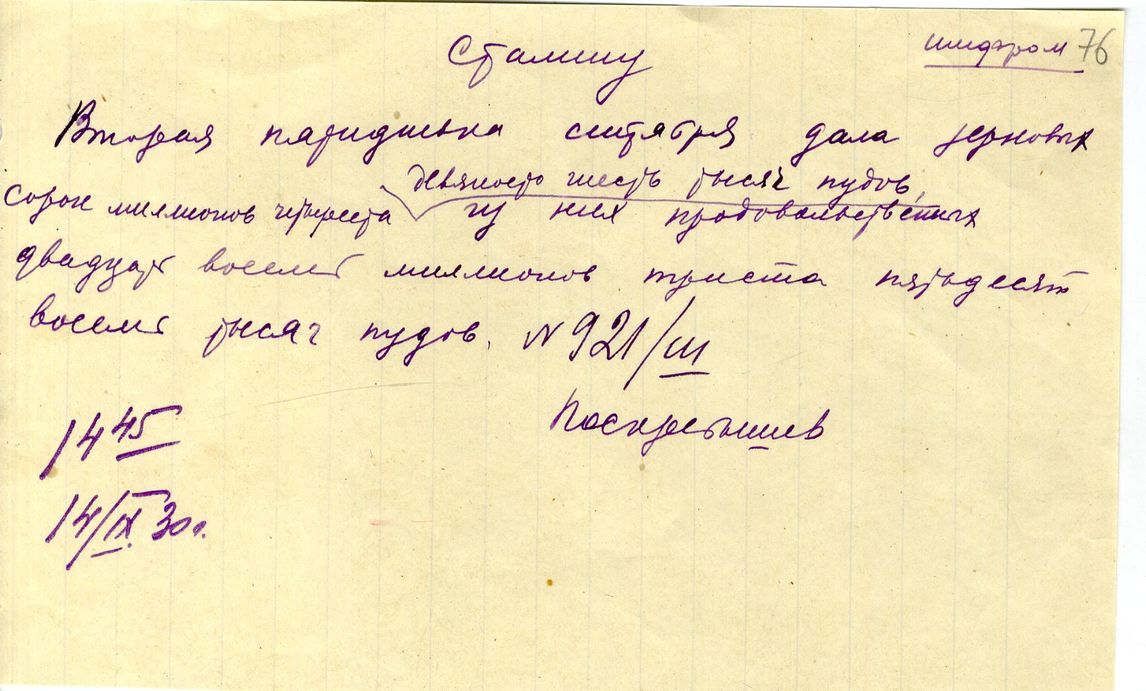 шифром 76
Сталину
Вторая пятидневка сентября дала зерновых
девяносто шесть тысяч пудов,
сорок миллионов четыреста из них продовольственных
двадцать восемь миллионов триста пятьдесят
восемь тысяч пудов. N 921/III
Поскребышев
14 45
14/IX 30 г.